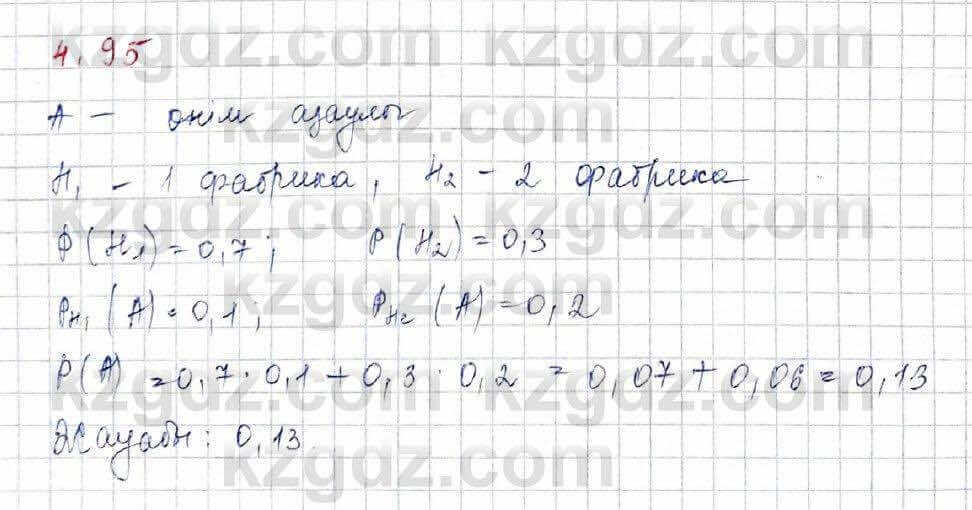 4.95
A – өнім ақаулы
H₁ – 1 фабрика, H₂ – 2 фабрика
P(H₁) = 0,7; P(H₂) = 0,3
P_H₁(A) = 0,1; P_H₂(A) = 0,2
P(A) = 0,7 · 0,1 + 0,3 · 0,2 = 0,07 + 0,06 = 0,13
Жауабы: 0,13.
kzgdz.com
kzgdz.com
kzgdz.com
kzgdz.com
kzgdz.com
kzgdz.com